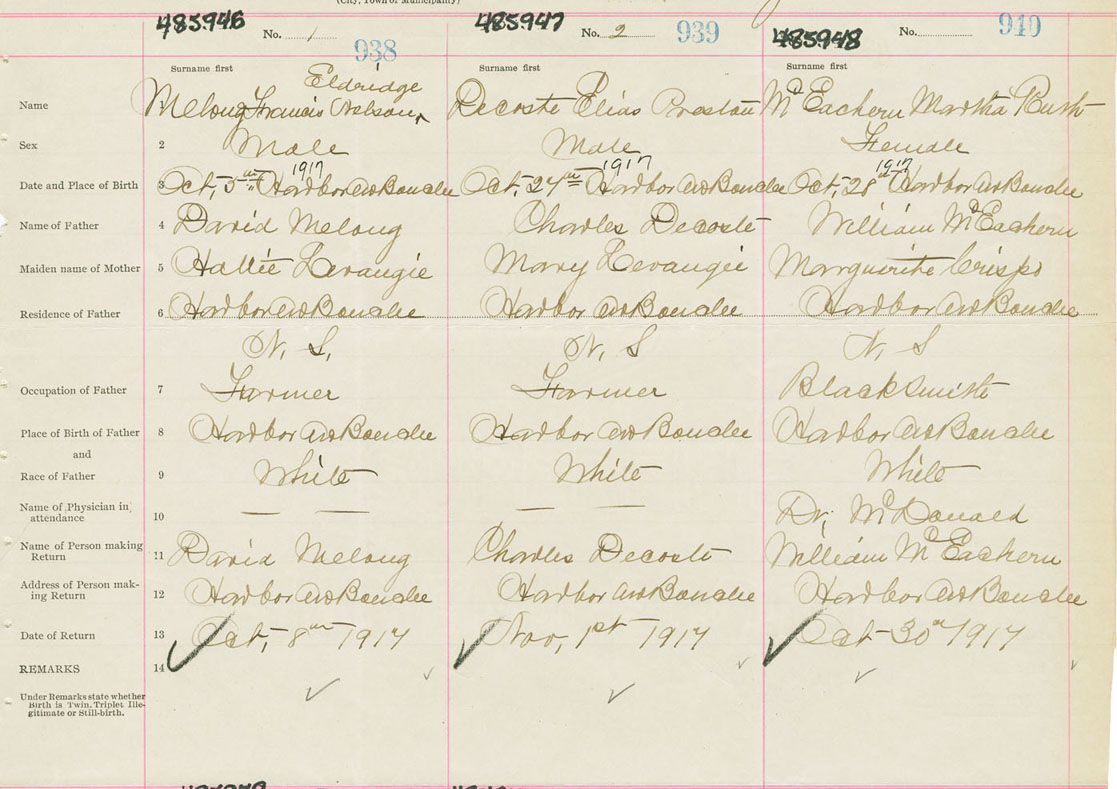 (City, Town or Municipality)
485946 No. 1 938
485947 No. 2 939
485948 No. 940
Surname first Surname first Surname first
Eldridge
Name 1 Melong Francis Nelson Decoste Elias Preston McEachern Martha Ruth
Sex 2 Male Male Female
1917 1917 1917
Date and Place of Birth 3 Oct, 5th Harbor au Bouche Oct, 27th Harbor au Bouche Oct, 28th Harbor au Bouche
Name of Father 4 David Melong Charles Decoste William McEachern
Maiden name of Mother 5 Hattie Levangie Mary Levangie Marguerite Crispo
Residence of Father 6 Harbor au Bouche Harbor au Bouche Harbor au Bouche
N. S. N. S N. S
Occupation of Father 7 Farmer Farmer Blacksmith
Place of Birth of Father 8 Harbor au Bouche Harbor au Bouche Harbor au Bouche
and
Race of Father 9 White White White
Name of Physician in
attendance 10 — — — — Dr, McDonald
Name of Person making
Return 11 David Melong Charles Decoste William McEachern
Address of Person mak-
ing Return 12 Harbor au Bouche Harbor au Bouche Harbor au Bouche
Date of Return 13 Oct, 8th 1917 Nov, 1st 1917 Oct 30th 1917
REMARKS 14
Under Remarks state whether
Birth is Twin, Triplet Ille-
gitimate or Still-birth.